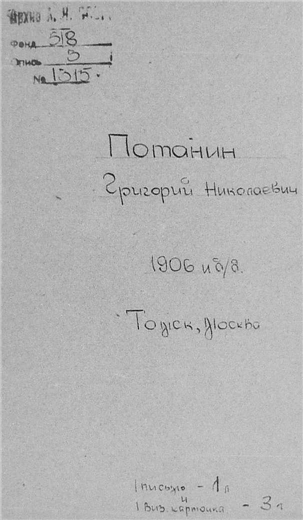 Архив А. Н. СССР
Фонд 518
Опись 3
№ 1315
Потанин
Григорий Николаевич
1906 и б/д.
Томск, Москва
1 письмо - 1 л
и
1 виз. карточка - 3 л